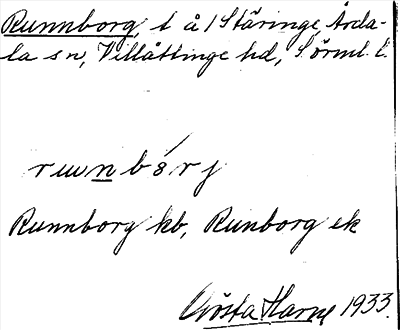 Runnborg, t å /Stäringe, Årda-
la sn, Villåttinge hd, Sörml. l.
rɯnbórj
Runnborg kb, Runborg ek
Gösta Harne 1933.